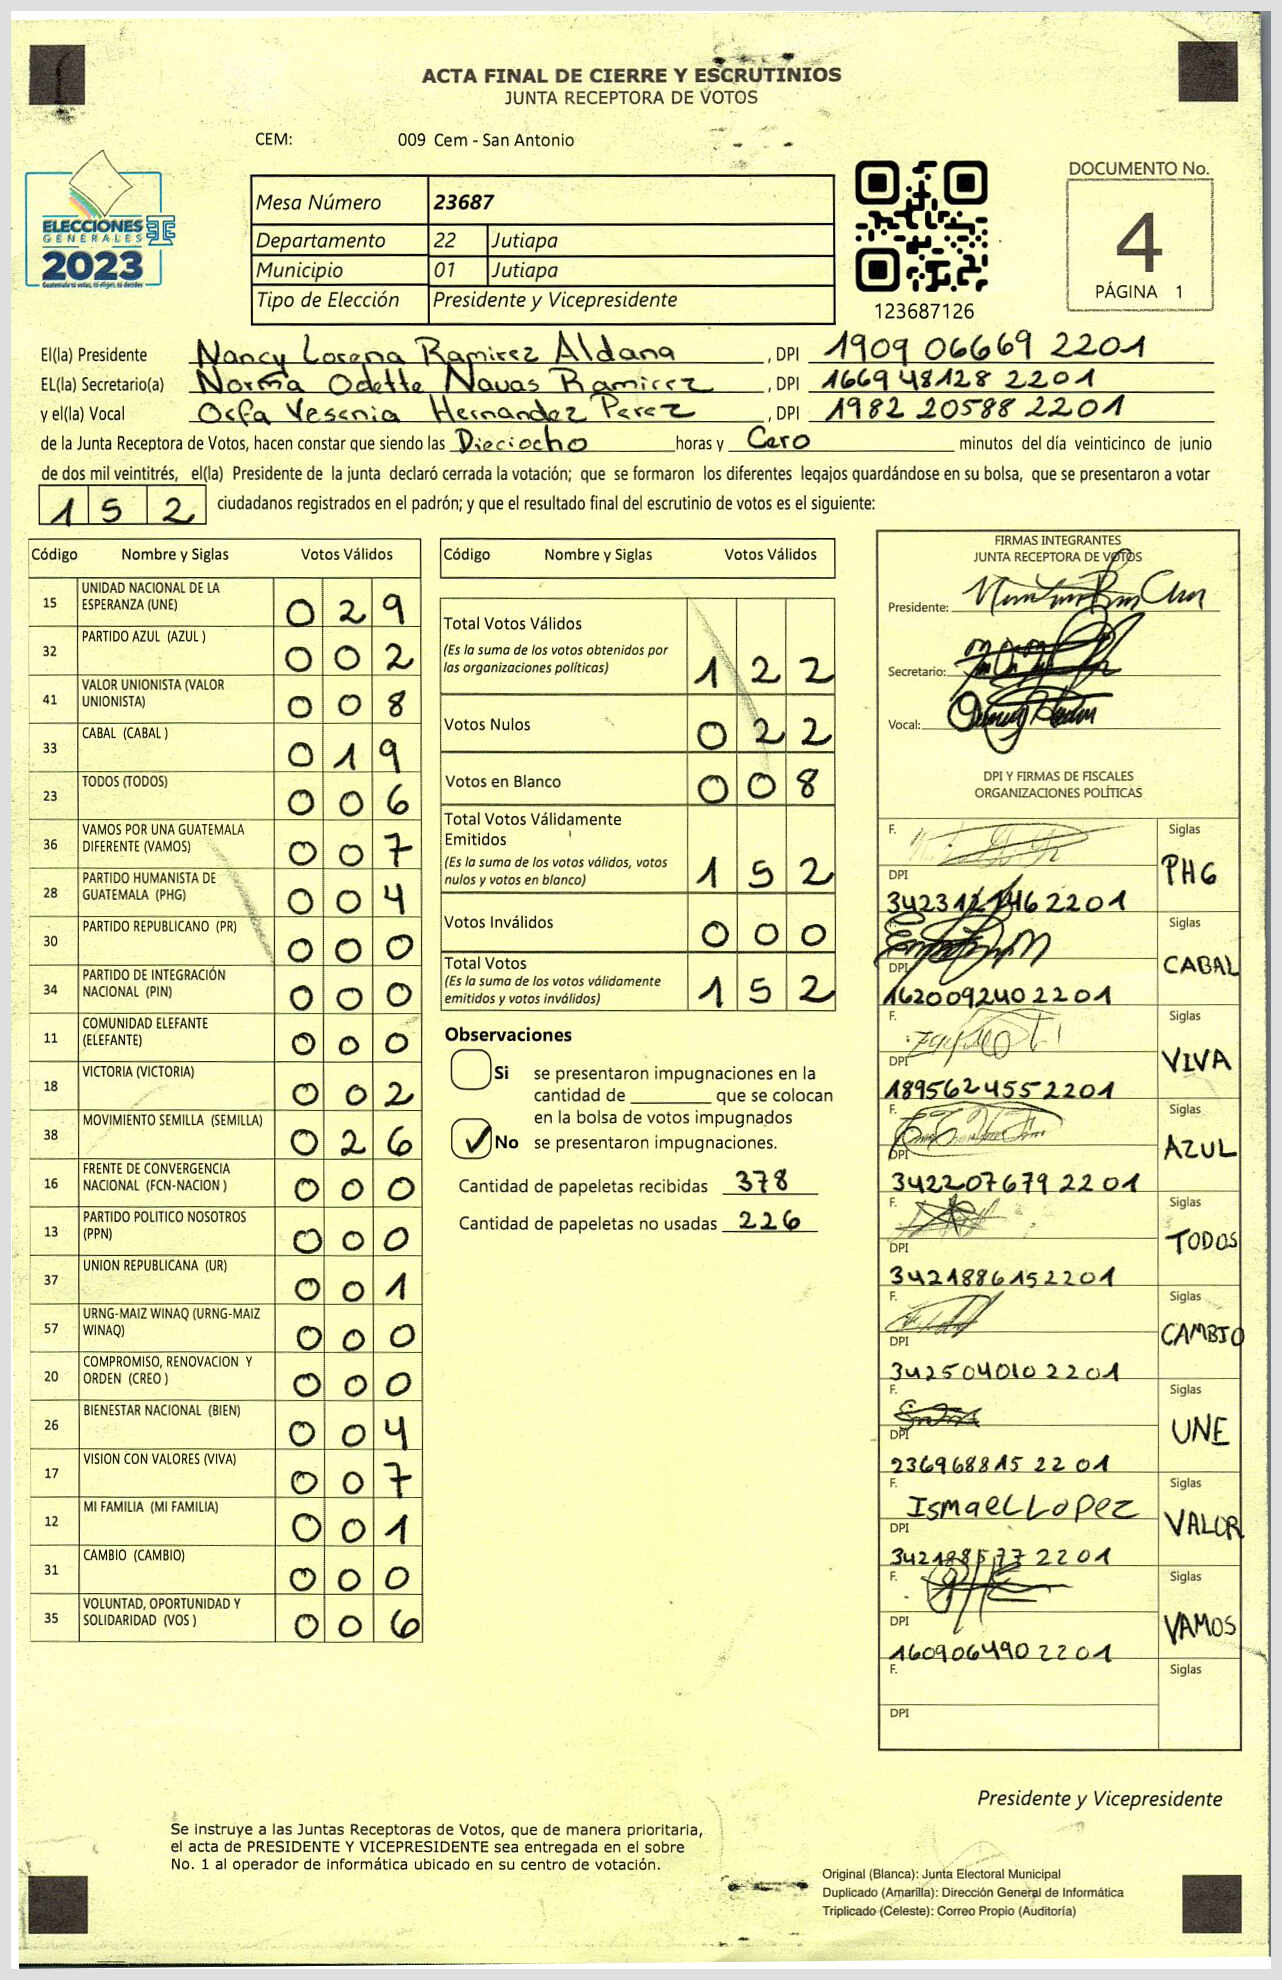 ACTA FINAL DE CIERRE Y ESCRUTINIOS
JUNTA RECEPTORA DE VOTOS
CEM: 009 Cem - San Antonio
ELECCIONES
GENERALES
2023
Guatemala tú votas, tú eliges, tú decides
Mesa Número 23687
Departamento 22 Jutiapa
Municipio 01 Jutiapa
Tipo de Elección Presidente y Vicepresidente
123687126
DOCUMENTO No.
4
PÁGINA 1
El(la) Presidente Nancy Lorena Ramirez Aldana , DPI 1909 06669 2201
EL(la) Secretario(a) Norma Odette Navas Ramirez , DPI 1669 48128 2201
y el(la) Vocal Orfa Yesenia Hernandez Perez , DPI 1982 20588 2201
de la Junta Receptora de Votos, hacen constar que siendo las Dieciocho horas y Cero minutos del día veinticinco de junio
de dos mil veintitrés, el(la) Presidente de la junta declaró cerrada la votación; que se formaron los diferentes legajos quardándose en su bolsa, que se presentaron a votar
152 ciudadanos registrados en el padrón; y que el resultado final del escrutinio de votos es el siguiente:
Código Nombre y Siglas Votos Válidos
15 UNIDAD NACIONAL DE LA ESPERANZA (UNE) 029
32 PARTIDO AZUL (AZUL ) 002
41 VALOR UNIONISTA (VALOR UNIONISTA) 008
33 CABAL (CABAL ) 019
23 TODOS (TODOS) 006
36 VAMOS POR UNA GUATEMALA DIFERENTE (VAMOS) 007
28 PARTIDO HUMANISTA DE GUATEMALA (PHG) 004
30 PARTIDO REPUBLICANO (PR) 000
34 PARTIDO DE INTEGRACIÓN NACIONAL (PIN) 000
11 COMUNIDAD ELEFANTE (ELEFANTE) 000
18 VICTORIA (VICTORIA) 002
38 MOVIMIENTO SEMILLA (SEMILLA) 026
16 FRENTE DE CONVERGENCIA NACIONAL (FCN-NACION ) 000
13 PARTIDO POLITICO NOSOTROS (PPN) 000
37 UNION REPUBLICANA (UR) 001
57 URNG-MAIZ WINAQ (URNG-MAIZ WINAQ) 000
20 COMPROMISO, RENOVACION Y ORDEN (CREO ) 000
26 BIENESTAR NACIONAL (BIEN) 004
17 VISION CON VALORES (VIVA) 007
12 MI FAMILIA (MI FAMILIA) 001
31 CAMBIO (CAMBIO) 000
35 VOLUNTAD, OPORTUNIDAD Y SOLIDARIDAD (VOS ) 006
Código Nombre y Siglas Votos Válidos
Total Votos Válidos 122
(Es la suma de los votos obtenidos por
las organizaciones políticas)
Votos Nulos 022
Votos en Blanco 008
Total Votos Válidamente
Emitidos 152
(Es la suma de los votos válidos, votos
nulos y votos en blanco)
Votos Inválidos 000
Total Votos 152
(Es la suma de los votos válidamente
emitidos y votos inválidos)
Observaciones
Si se presentaron impugnaciones en la
cantidad de ________ que se colocan
en la bolsa de votos impugnados
✓ No se presentaron impugnaciones.
Cantidad de papeletas recibidas 378
Cantidad de papeletas no usadas 226
FIRMAS INTEGRANTES
JUNTA RECEPTORA DE VOTOS
Presidente:
Secretario:
Vocal:
DPI Y FIRMAS DE FISCALES
ORGANIZACIONES POLÍTICAS
F. Siglas
DPI PHG
F. Siglas
DPI CABAL
1620092402201
F. Siglas
DPI VIVA
1895624552201
F. Siglas
DPI AZUL
3422076792201
F. Siglas
DPI TODOS
3421886152201
F. Siglas
DPI CAMBIO
3425040102201
F. Siglas
DPI UNE
2369688152201
F. Ismael Lopez Siglas
DPI VALOR
F. Siglas
DPI VAMOS
1609064902201
F. Siglas
DPI
Presidente y Vicepresidente
Se instruye a las Juntas Receptoras de Votos, que de manera prioritaria,
el acta de PRESIDENTE Y VICEPRESIDENTE sea entregada en el sobre
No. 1 al operador de informática ubicado en su centro de votación.
Original (Blanca): Junta Electoral Municipal
Duplicado (Amarilla): Dirección General de Informática
Triplicado (Celeste): Correo Propio (Auditoría)